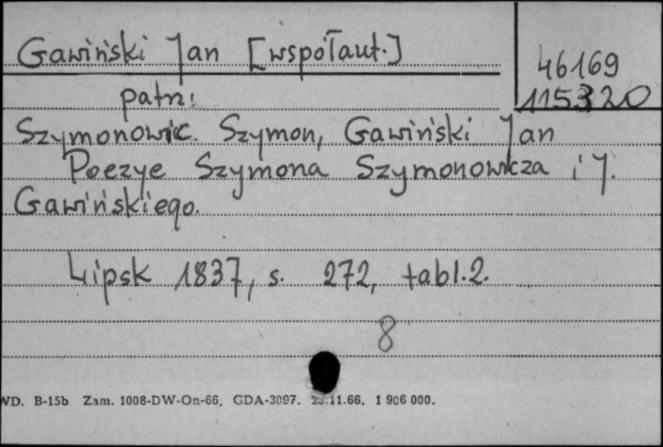 Gawiński Jan [współaut.]
46169
115320
patrz:
Szymonowic. Szymon, Gawiński Jan
Poezye Szymona Szymonowicza i J.
Gawińskiego.
Lipsk 1837, s. 272, tabl. 2.
8
WD. B-15b Zam. 1008-DW-On-66. GDA-3097. 23.11.66. 1 906 000.